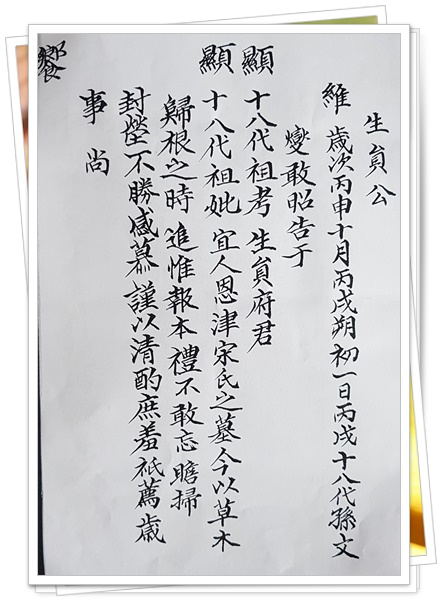 生員公
維 歲次丙申十月丙戌朔 初一日丙戌 十八代孫文
燮敢昭告于
顯 十八代祖考 生員府君
顯 十八代祖妣 宜人恩津宋氏之墓今以草木
歸根之時 追惟報本禮不敢忘 瞻掃
封塋不勝感慕 謹以清酌庶羞祗薦歲
事 尚
饗